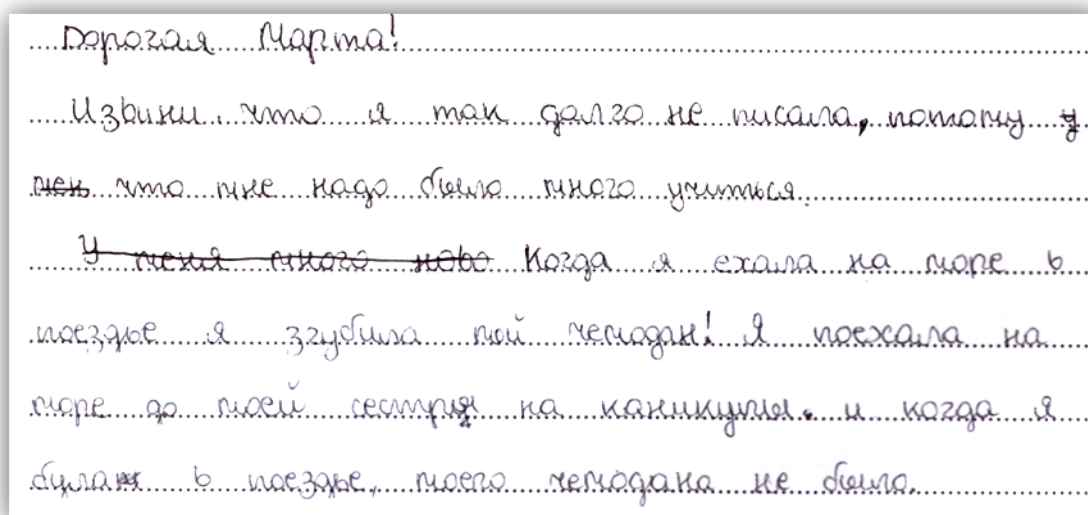 Дорогая Марта!
Извини, что я так долго не писала, потому у
мен что мне надо было много учиться.
У меня много ново Когда я ехала на море в
поездье я ззгубила мой чемодан! Я поехала на
море до моей сестры на каникулы. и когда я
була в поездье, моего чемодана не было.